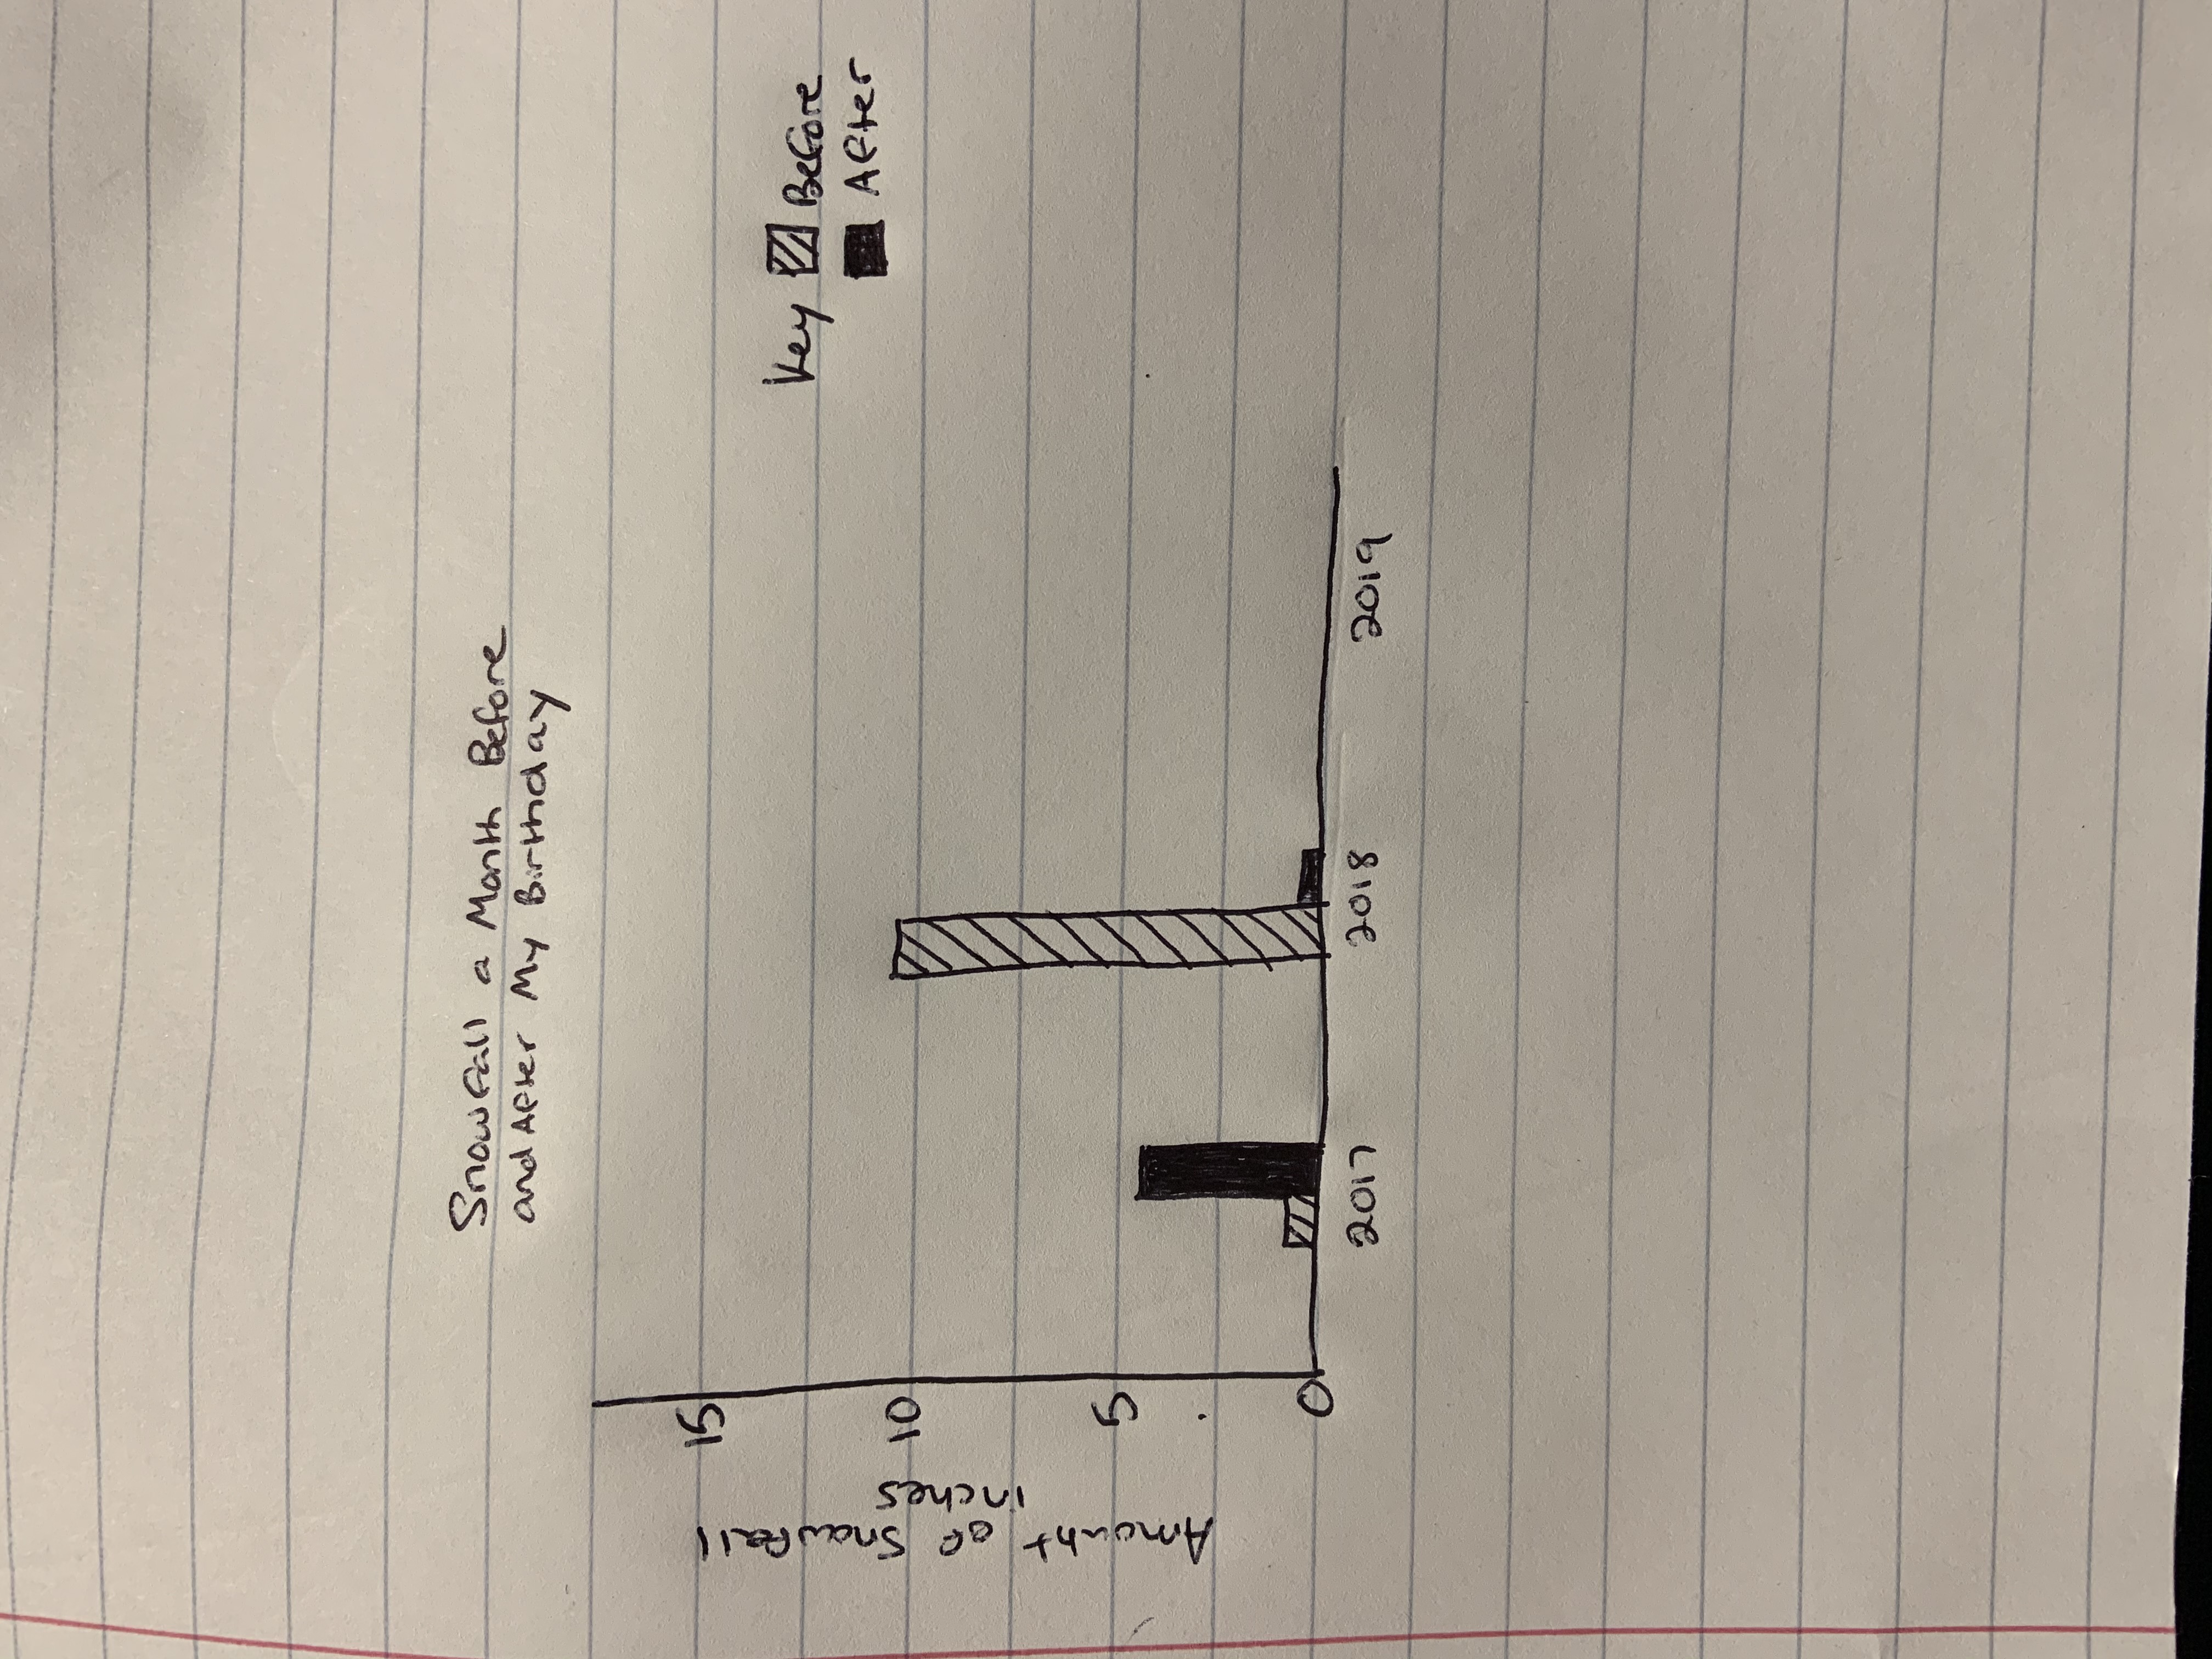 Snowfall a Month Before
and After My Birthday
Amount of Snowfall
inches
15
10
5
0
2017 2018 2019
Key Before
After